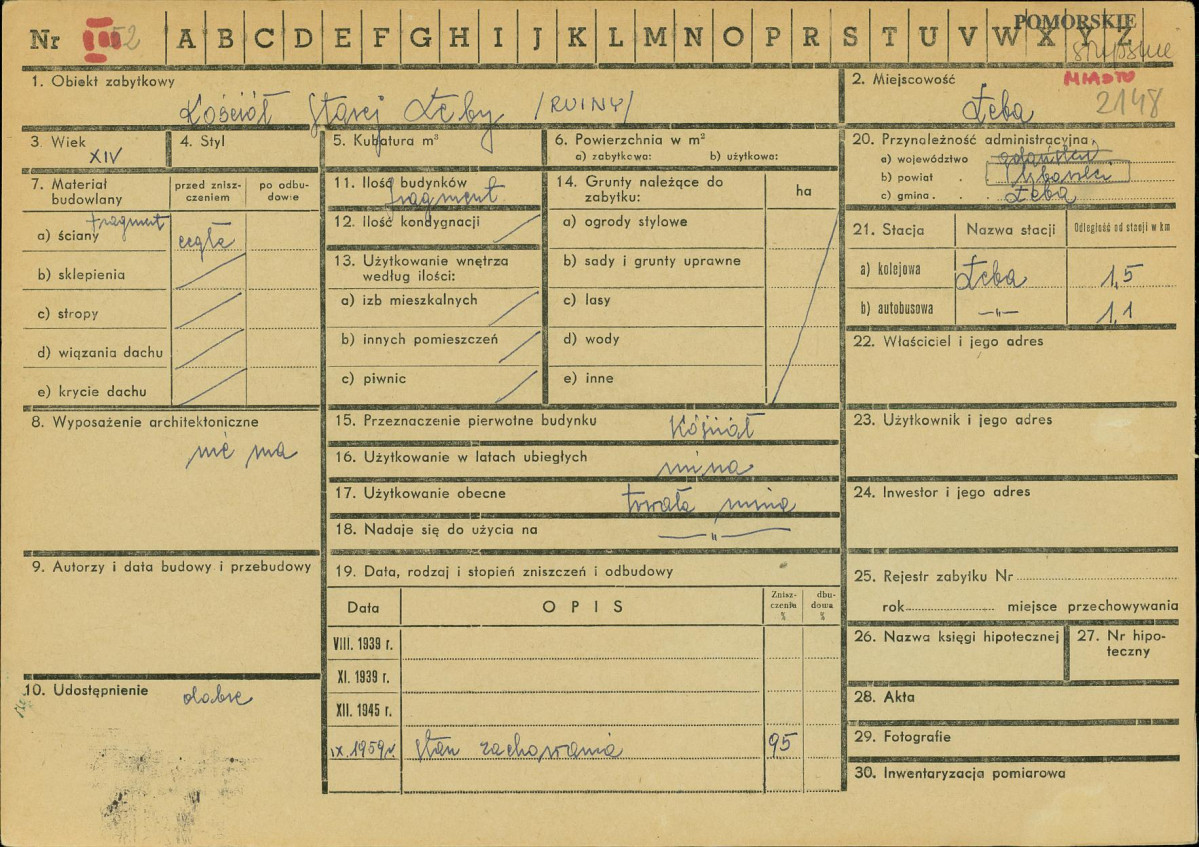 POMORSKIE
Nr III 52 A B C D E F G H I J K L M N O P R S T U V W X Y Z
słupskie
MIASTO
2148
1. Obiekt zabytkowy
Kościół Starej Łeby /RUINY/
2. Miejscowość
Łeba
3. Wiek
XIV
4. Styl
5. Kubatura m³
6. Powierzchnia w m²
a) zabytkowa: b) użytkowa:
20. Przynależność administracyjna
a) województwo gdańskie
b) powiat
c) gmina Łeba
7. Materiał budowlany
przed zniszczeniem
po odbudowie
fragment
a) ściany cegła
b) sklepienia
c) stropy
d) wiązania dachu
e) krycie dachu
11. Ilość budynków
fragment
12. Ilość kondygnacji
13. Użytkowanie wnętrza według ilości:
a) izb mieszkalnych
b) innych pomieszczeń
c) piwnic
14. Grunty należące do zabytku:
ha
a) ogrody stylowe
b) sady i grunty uprawne
c) lasy
d) wody
e) inne
21. Stacja Nazwa stacji Odległość od stacji w km
a) kolejowa Łeba 1,5
b) autobusowa —„— 1,1
22. Właściciel i jego adres
8. Wyposażenie architektoniczne
nie ma
15. Przeznaczenie pierwotne budynku kościół
16. Użytkowanie w latach ubiegłych ruina
17. Użytkowanie obecne trwała ruina
18. Nadaje się do użycia na —„—
23. Użytkownik i jego adres
24. Inwestor i jego adres
9. Autorzy i data budowy i przebudowy
19. Data, rodzaj i stopień zniszczeń i odbudowy
Data OPIS Zniszczenia % dbudowa %
VIII. 1939 r.
XI. 1939 r.
XII. 1945 r.
IX. 1959 r. stan zachowania 95
25. Rejestr zabytku Nr
rok miejsce przechowywania
26. Nazwa księgi hipotecznej
27. Nr hipoteczny
10. Udostępnienie dobre
28. Akta
29. Fotografie
30. Inwentaryzacja pomiarowa